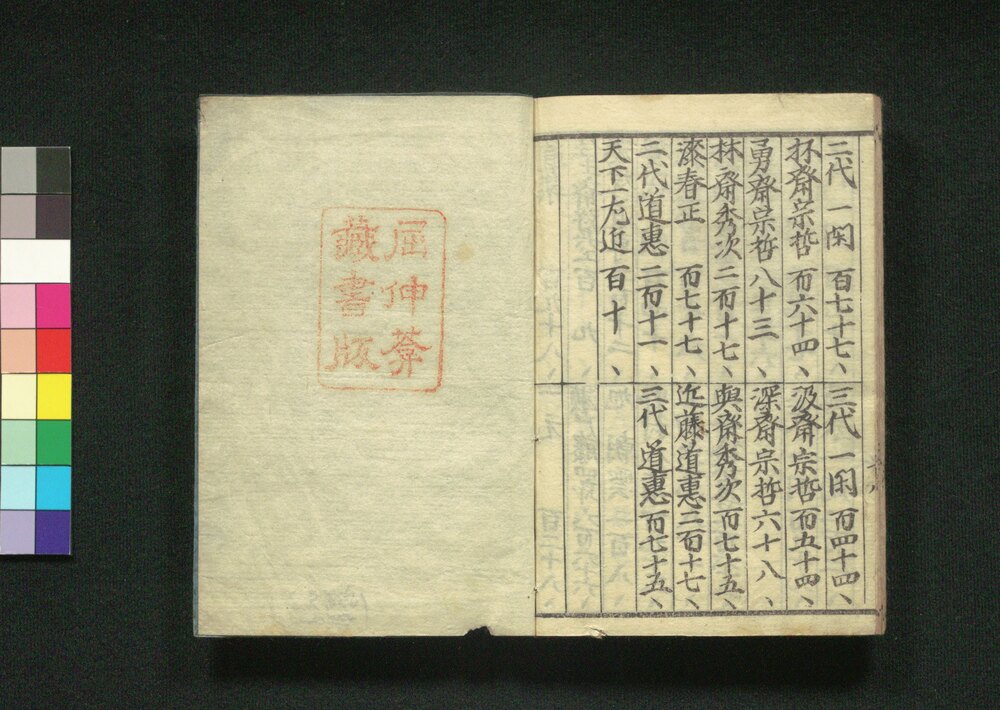 二代 一閑 百七十七、
抔斎宗哲 百六十四、
勇斎宗哲 八十三、
抹斎秀次 二百十七、
漆春正 百七十七、
二代道惠 二百十一、
天下一尢近 百十、
三代 一閑 百四十四、
汲斎宗哲 百五十四、
深斎宗哲 六十八、
與斎秀次 百七十五、
近藤道惠 二百十七、
三代 道惠 百七十五、
屈伸菴
藏書版